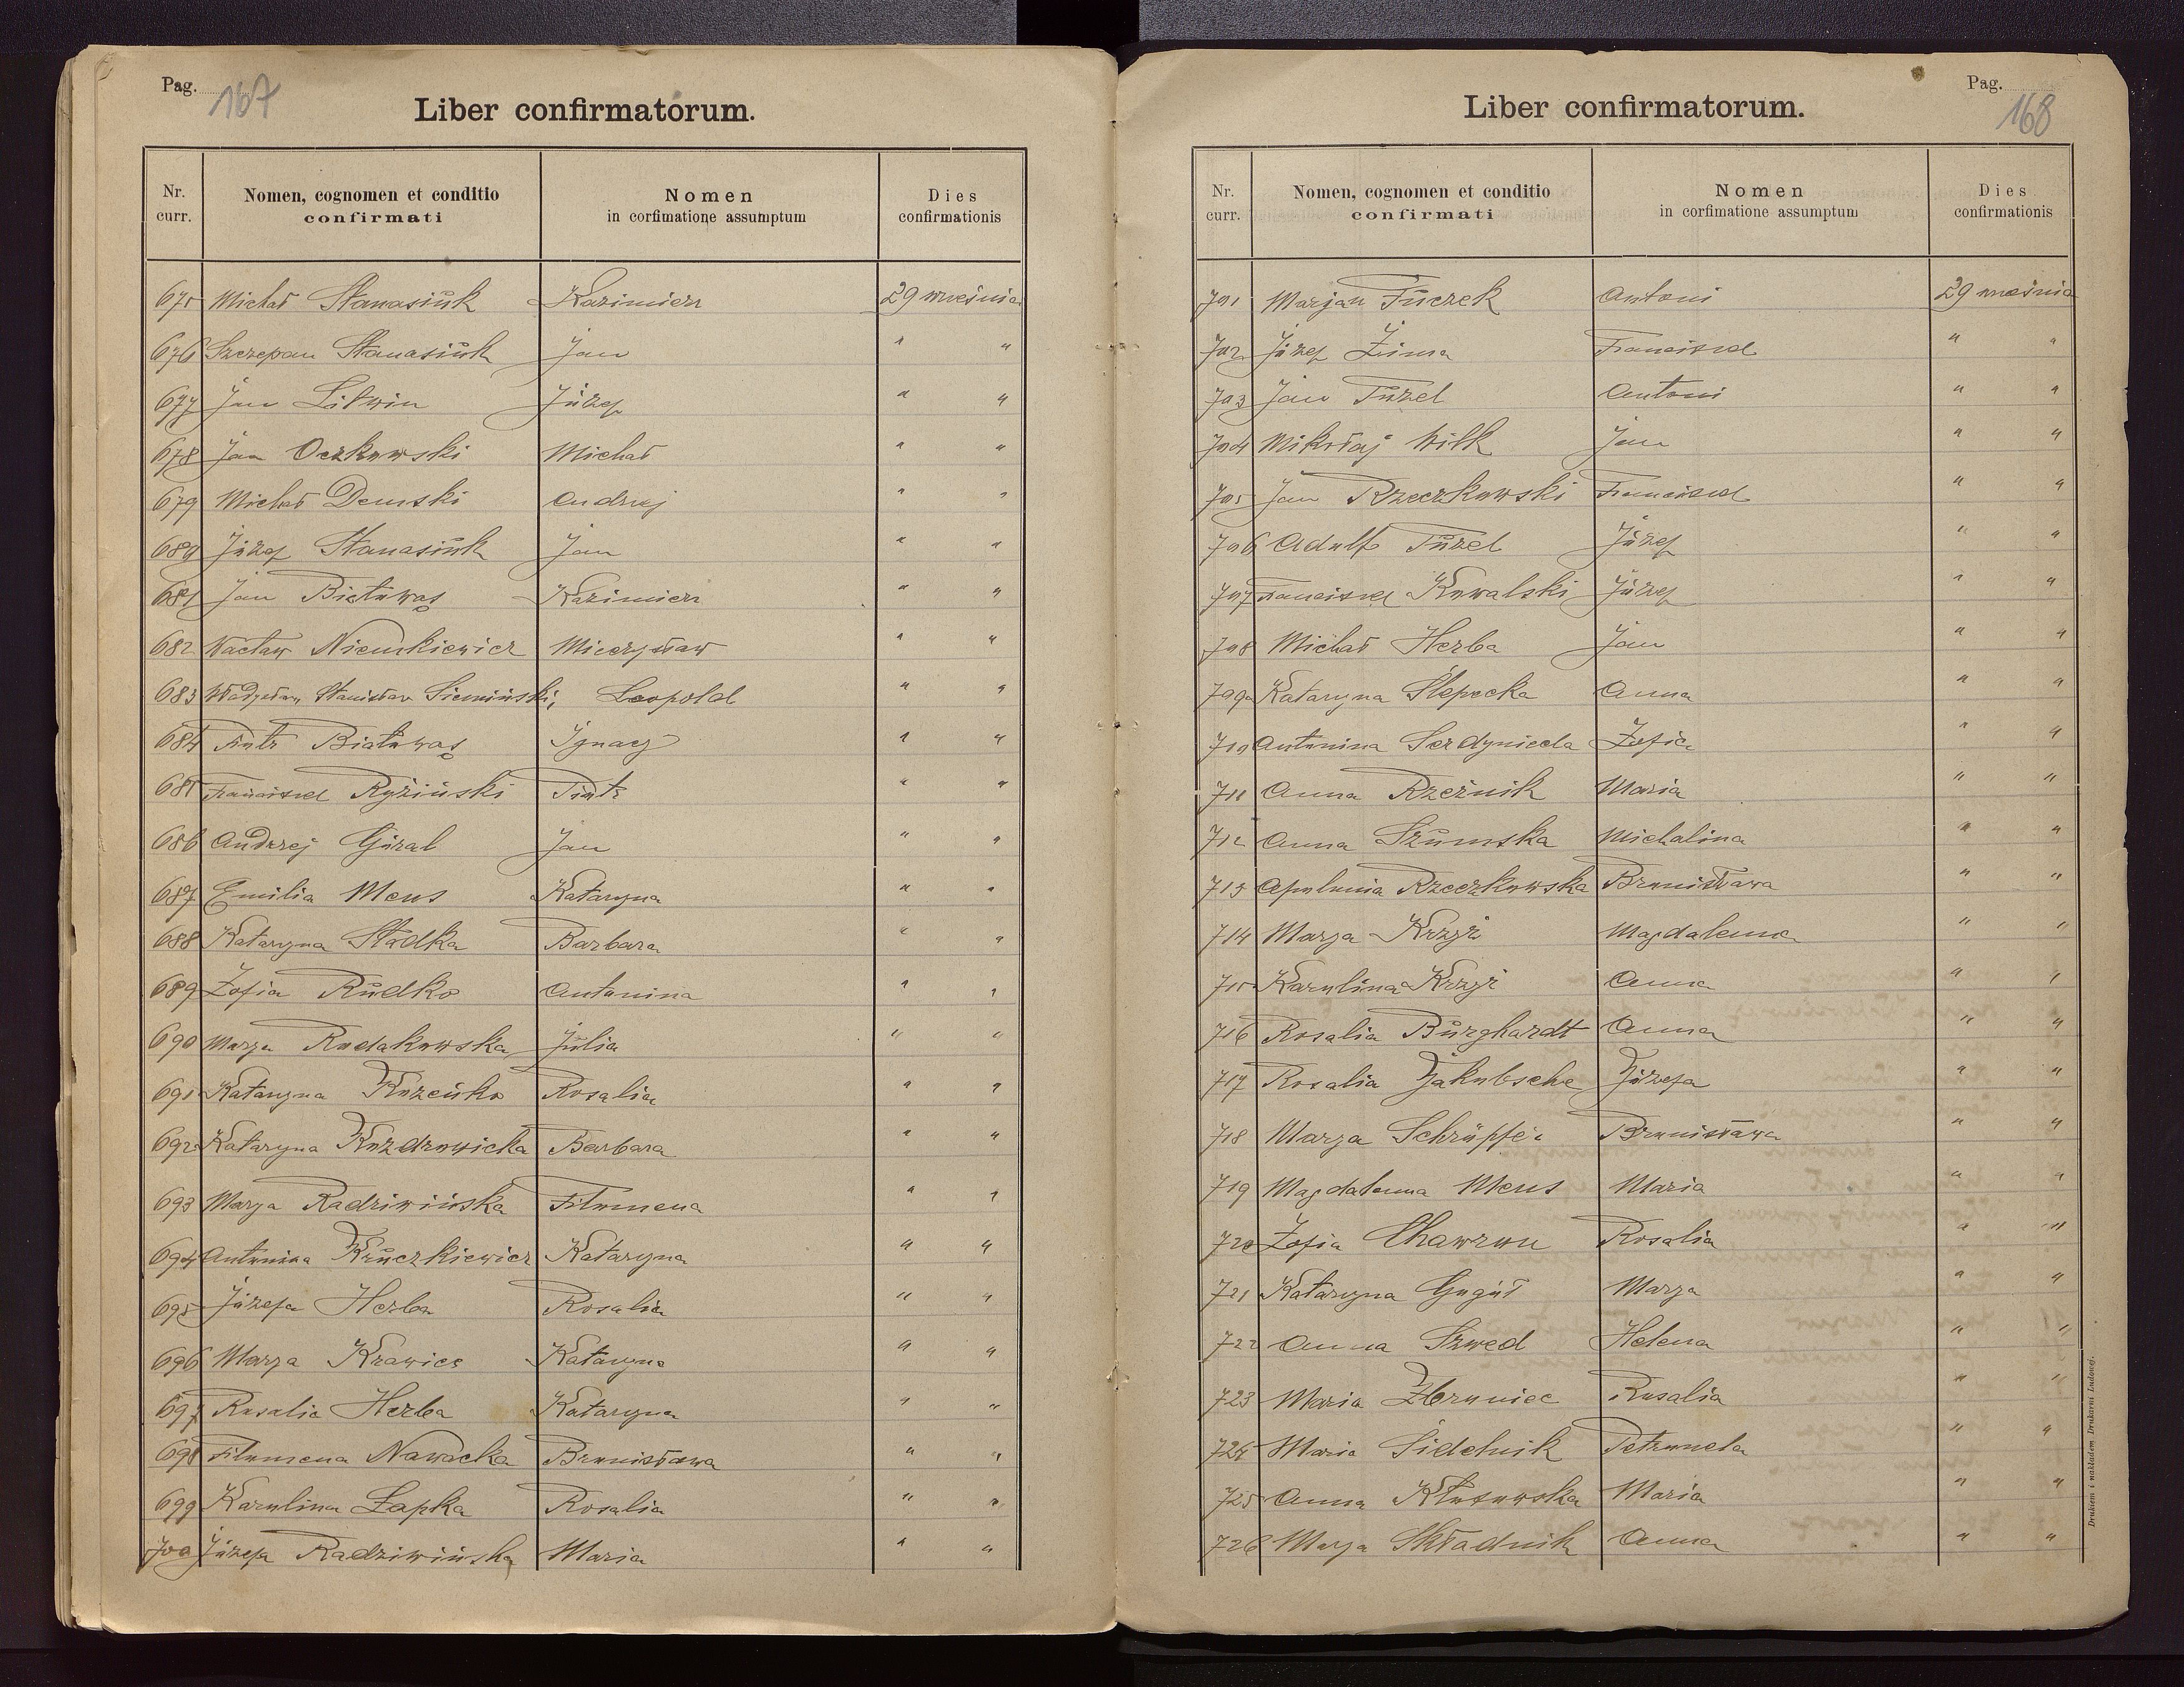 Pag. 167
Liber confirmatorum.
Nr. curr. Nomen, cognomen et conditio confirmati Nomen in corfimatione assumptum Dies confirmationis
675 Michał Stanasiuk Kazimierz 29 września
676 Szczepan Stanasiuk Jan " "
677 Jan Litwin Józef " "
678 Jan Oczkowski Michał " "
679 Michał Demski Andrzej " "
680 Józef Stanasiuk Jan " "
681 Jan Białowąs Kazimierz " "
682 Wacław Niemkiewicz Mieczysław " "
683 Władysław, Stanisław Siemiński, Leopold " "
684 Piotr Białowąs Ignacy " "
685 Franciszek Ryziński Piotr " "
686 Andrzej Góral Jan " "
687 Emilia Mens Katarzyna " "
688 Katarzyna Sładka Barbara " "
689 Zofia Rudko Antonina " "
690 Marya Rudakowska Julia " "
691 Katarzyna Rosalia " "
692 Katarzyna Kozdrowicka Barbara " "
693 Marya Radziwińska Filomena " "
694 Antonina Kruczkiewicz Katarzyna " "
695 Józefa Herba Rosalia " "
696 Marya Krawiec Katarzyna " "
697 Rosalia Herba Katarzyna " "
698 Filomena Nawacka Bronisława " "
699 Karolina Łapka Rosalia " "
700 Józefa Radziwińska Maria " "
Pag. 168
Liber confirmatorum.
Nr. curr. Nomen, cognomen et conditio confirmati Nomen in corfimatione assumptum Dies confirmationis
701 Marjan Tuczek Antoni 29 września
702 Józef Zima Franciszek " "
703 Jan Tuzel Antoni " "
704 Mikołaj Wilk Jan " "
705 Jan Rzeczkowski Franciszek " "
706 Adolf Tuzel Józef " "
707 Franciszek Kowalski Józef " "
708 Michał Herba Jan " "
709 Katarzyna Ślepecka Anna " "
710 Antonina Zofia " "
711 Anna Rzeźnik Maria " "
712 Anna Szumska Michalina " "
713 Apolonia Rzeczkowska Bronisława " "
714 Marya Krzyż Magdalena " "
715 Karolina Krzyż Anna " "
716 Rosalia Burghardt Anna " "
717 Rosalia Jakobsche Józefa " "
718 Marya Bronisława " "
719 Magdalena Mens Maria " "
720 Zofia Chawron Rosalia " "
721 Katarzyna Guguł Marya " "
722 Anna Szwed Helena " "
723 Maria Zbroniec Rosalia " "
724 Maria Sidelnik Petronela " "
725 Anna Maria " "
726 Marya Składnik Anna " "
Drukiem i nakładem Drukarni Ludowej.